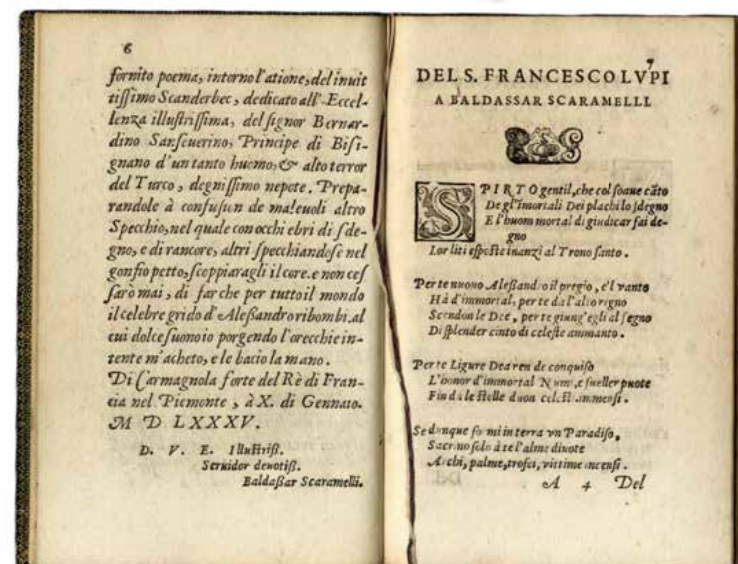 6
fornito poema, intorno l'atione, del inuit
tissimo Scanderbec, dedicato all' Eccel-
lenza illustrissima, del signor Bernar-
dino Sanseuerino, Principe di Bisi-
gnano d'un tanto huomo, & alto terror
del Turco, degnissimo nepote. Prepa-
randole à confusion de maleuoli altro
Specchio, nel quale con occhi ebri di sde-
gno, e di rancore, altri specchiandose nel
gonfio petto, scoppiaragli il core. e non ces
sarò mai, di far che per tutto il mondo
il celebre grido d'Alessandro ribombi. al
cui dolce suono io porgendo l'orecchie in-
tente m'acheto, e le bacio la mano.
Di Carmagnola forte del Rè di Fran-
cia nel Piemonte, à X. di Gennaio.
M D LXXXV.
D. V. E. Illustriss.
Seruidor deuotiss.
Baldassar Scaramelli.
7
DEL S. FRANCESCO LVPI
A BALDASSAR SCARAMELLI.
SPIRTO gentil, che col soaue cãto
De gl'immortali Dei plachi lo sdegno
E l'huom mortal di giudicar fai de-
gno
Lor liti esposte inanzi al Trono santo.
Per te nuouo Alessandro il pregio, e'l vanto
Hà d'immortal, per te da l'alto regno
Scendon le Dee, per te giung'egli al segno
Di splender cinto di celeste ammanto.
Per te Ligure Dea ren de conquiso
L'honor d'immortal Nume, e sueller puote
Fin da le stelle duon celesti immensi.
Se dunque formi in terra vn Paradiso,
Sacrino solo à te l'alme diuote
Archi, palme, trofei, vittime incensi.
A 4 Del